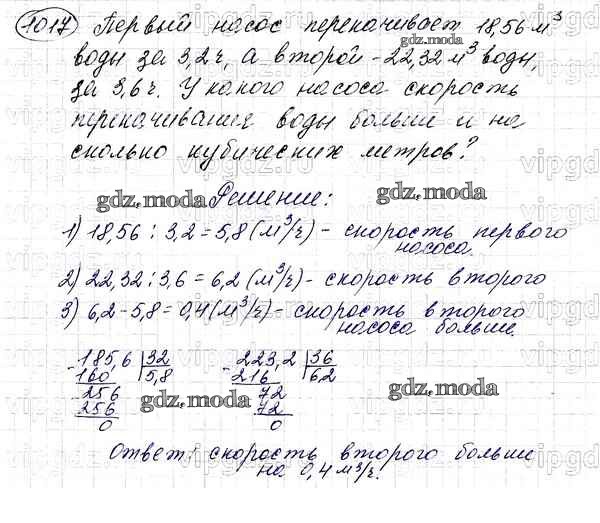 1017 Первый насос перекачивает 18,56 м³
gdz.moda
воды за 3,2 ч, а второй - 22,32 м³ воды,
за 3,6 ч. У какого насоса скорость
перекачивания воды больше и на
сколько кубических метров?
gdz.moda Решение: gdz.moda
1) 18,56 : 3,2 = 5,8 (м³/ч) - скорость первого
насоса.
2) 22,32 : 3,6 = 6,2 (м³/ч) - скорость второго
3) 6,2 - 5,8 = 0,4 (м³/ч) - скорость второго
насоса больше.
- 185,6 | 32 - 223,2 | 36
160 | 5,8 216 | 6,2
256 72
256 72
0 0
gdz.moda gdz.moda
Ответ: скорость второго больше
на 0,4 м³/ч.